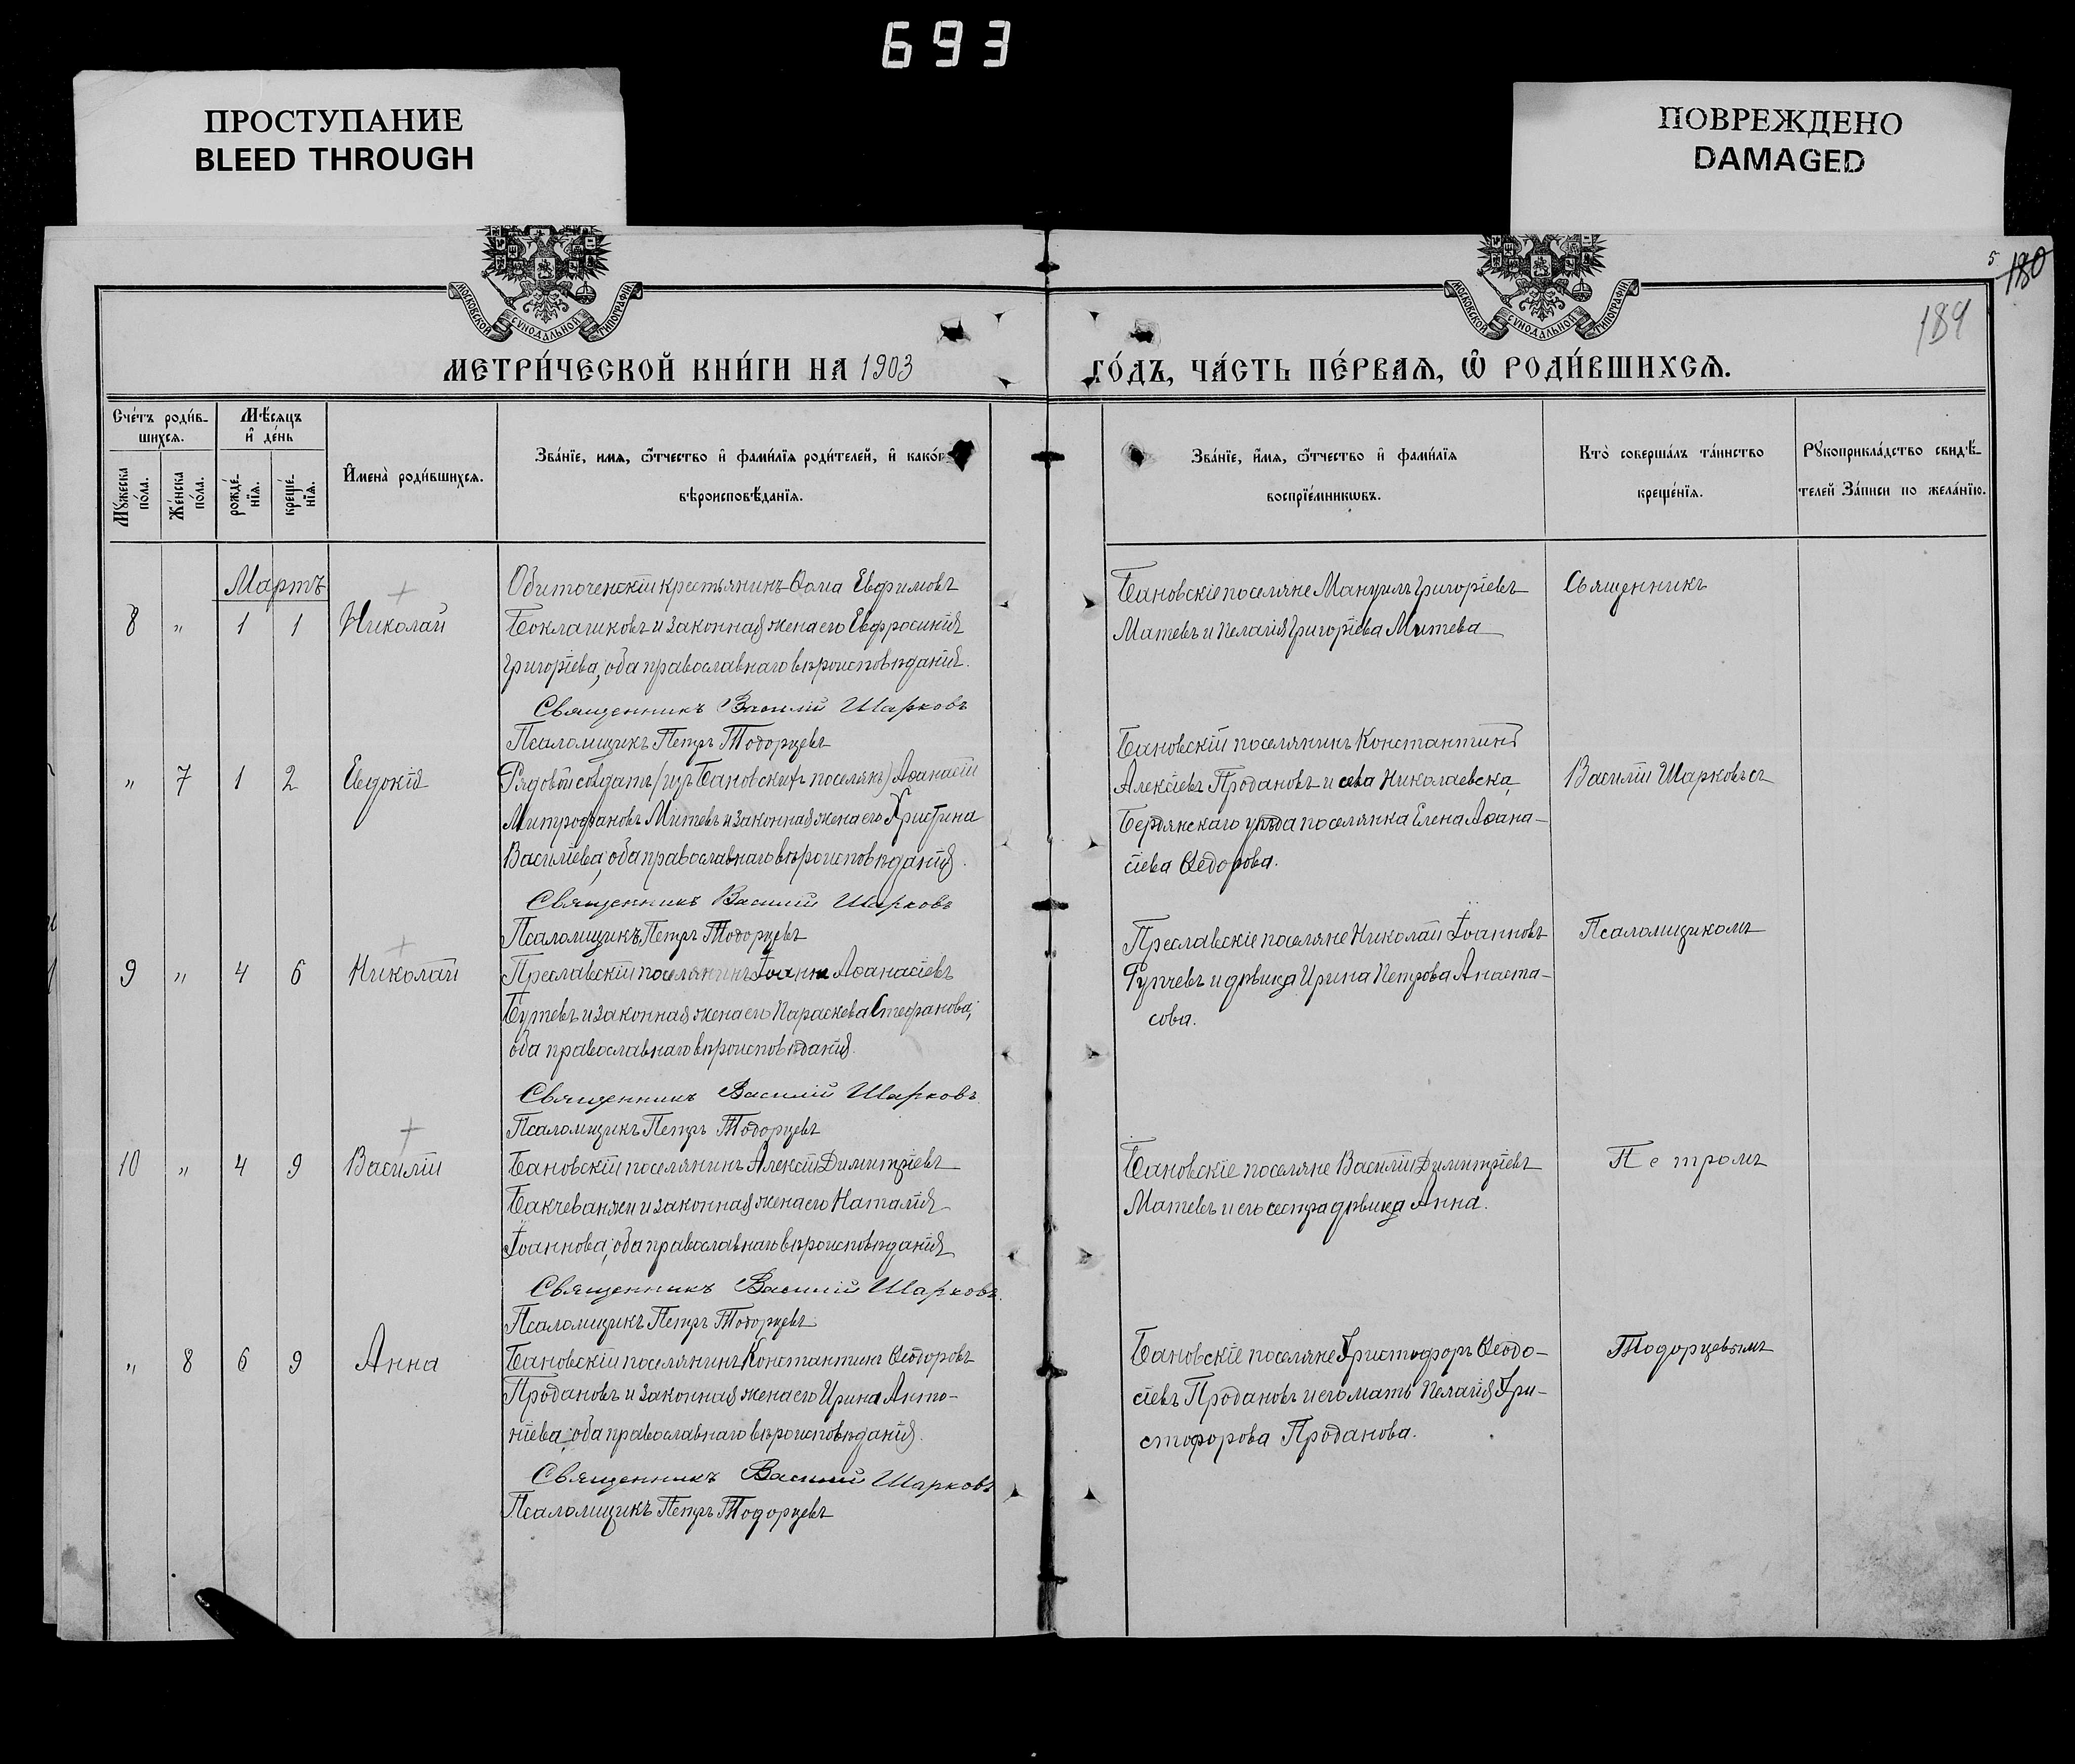 693
ПРОСТУПАНИЕ
BLEED THROUGH
ПОВРЕЖДЕНО
DAMAGED
МОСКОВСКОЙ СѴНОДАЛЬНОЙ ТИПОГРАФІИ
МОСКОВСКОЙ СѴНОДАЛЬНОЙ ТИПОГРАФІИ
5 180
189
МЕТРИ́ЧЕСКОЙ КНИ́ГИ НА 1903
ГО́ДЪ, ЧА́СТЬ ПЕ́РВАѦ, Ѡ҆ РОДИ́ВШИХСѦ.
Сче́тъ роди́в-
шихсѧ.
Мꙋ́жеска по́ла.
Же́нска по́ла.
Мѣ́сѧцъ
и҆ де́нь
рожде́-нїѧ.
креще́-нїѧ.
И҆мена̀ роди́вшихсѧ.
Зва́нїе, имѧ, ѻ҆́тчество и҆ фами́лїѧ роди́телей, и҆ како́г
вѣроисповѣ́данїѧ.
Зва́нїе, и҆́мѧ, ѻ҆́тчество и҆ фами́лїѧ
воспрїе́мникѡвъ.
Кто̀ соверша́лъ та́инство
креще́нїѧ.
Рꙋкоприкла́дство свидѣ́-
телей За́писи по жела́нїю.
Мартъ
8 " 1 1 Николай
Обиточенскій крестьянинъ Ѳома Евфимовъ
Боклашковъ и законная жена его Евфросинія
Григоріева, оба православнаго вѣроисповѣданія.
Священникъ Василій Шарковъ
Псаломщикъ Петръ Тодорцевъ
Бановскіе поселяне Мануилъ Григоріевъ
Матевъ и Пелагія Григоріева Митева
Священникъ
" 7 1 2 Евдокія
Рядовой солдатъ (изъ Бановскихъ поселянъ) Аѳанасій
Митрофановъ Митевъ и законная жена его Христина
Василіева, оба православнаго вѣроисповѣданія.
Священникъ Василій Шарковъ
Псаломщикъ Петръ Тодорцевъ
Бановскій поселянинъ Константинъ
Алексіевъ Продановъ и села Николаевска,
Бердянскаго уѣзда поселянка Елена Аѳана-
сіева Ѳедорова.
Василій Шарковъ съ
9 " 4 6 Николай
Преславскій поселянинъ Іоаннъ Аѳанасіевъ
Бутевъ и законная жена его Параскева Стефанова,
оба православнаго вѣроисповѣданія.
Священникъ Василій Шарковъ
Псаломщикъ Петръ Тодорцевъ
Преславскіе поселяне Николай Іоанновъ
и дѣвица Ирина Петрова Анаста-
сова.
Псаломщикомъ
10 " 4 9 Василій
Бановскій поселянинъ Алексій Димитріевъ
Бакчеванжи и законная жена его Наталія
Іоаннова, оба православнаго вѣроисповѣданія
Священникъ Василій Шарковъ.
Псаломщикъ Петръ Тодорцевъ
Бановскіе поселяне Василій Димитріевъ
Матевъ и его сестра дѣвица Анна.
Петромъ
" 8 6 9 Анна
Бановскій поселянинъ Константинъ Ѳедоровъ
Продановъ и законная жена его Ирина Анто-
ніева, оба православнаго вѣроисповѣданія.
Священникъ Василій Шарковъ
Псаломщикъ Петръ Тодорцевъ
Бановскіе поселяне Христофоръ Ѳеодо-
сіевъ Продановъ и его мать Пелагія Хри-
стофорова Проданова.
Тодорцевымъ